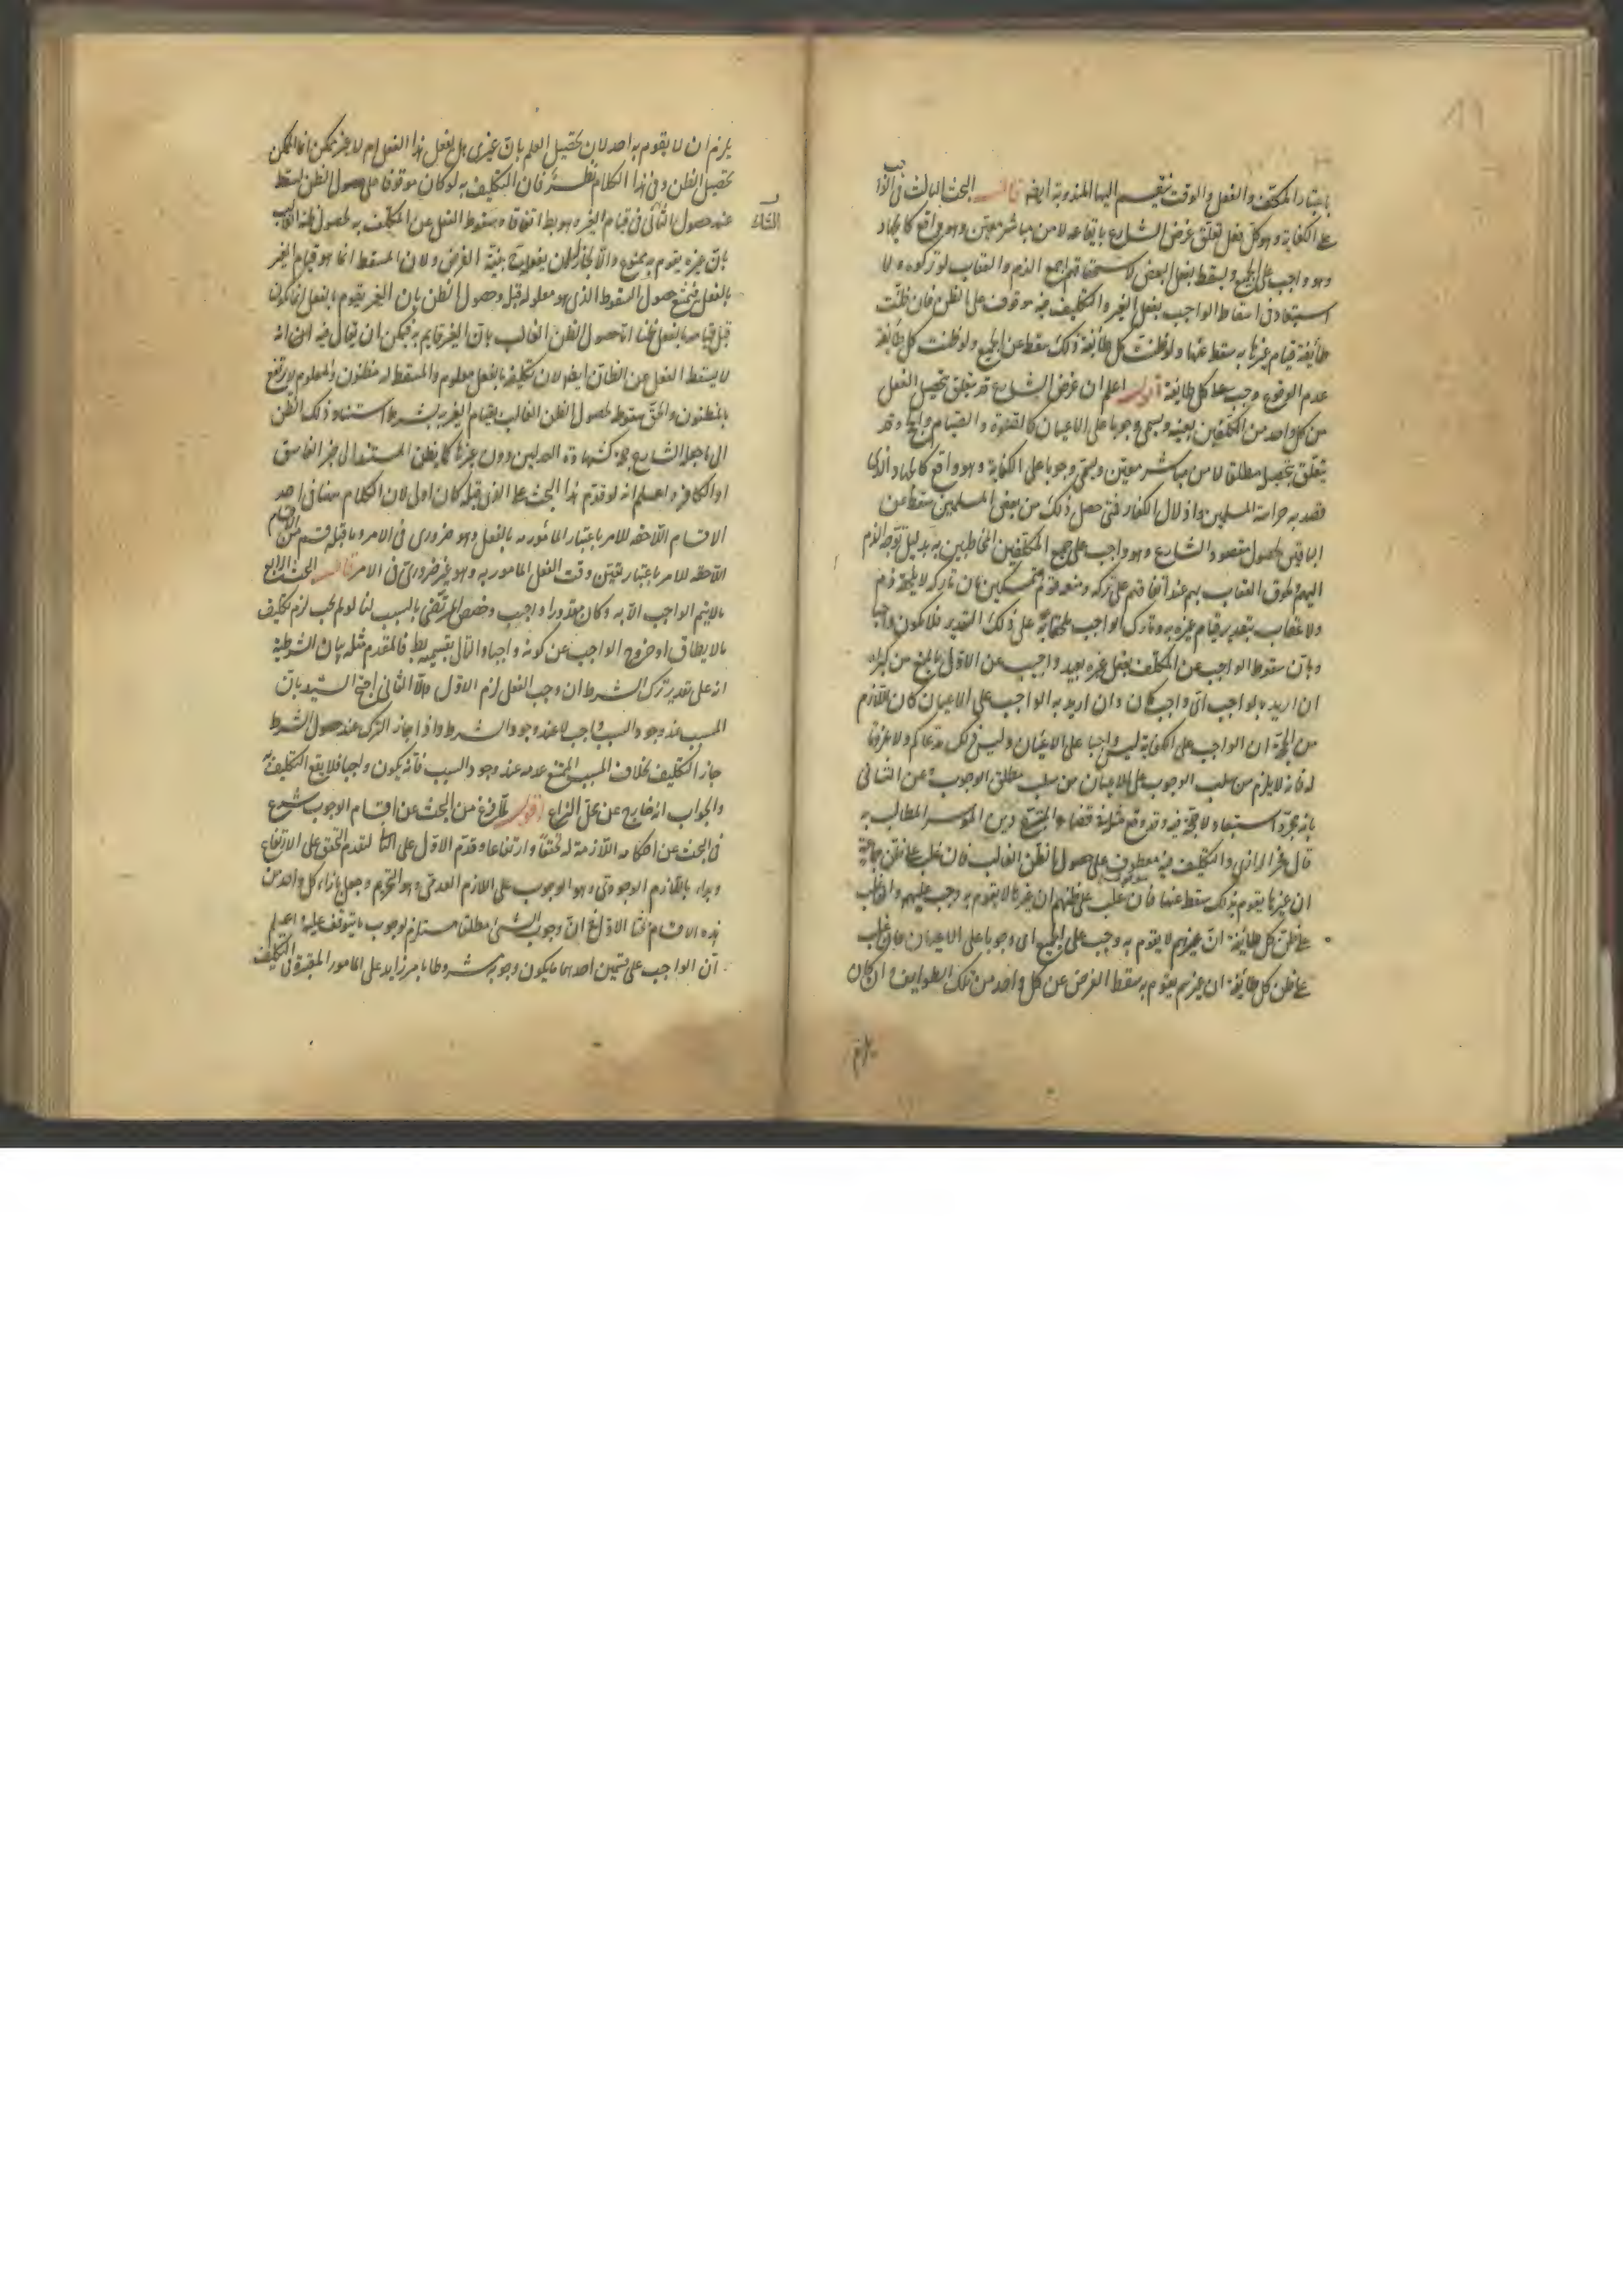 باعتبار المكلف والفعل والوقت ينقسم اليها المندوبة ايضا قال البحث الثالث في الواجب
على الكفاية وهو كل فعل تعلق غرض الشارع بايقاعه لا من مباشر معين وهو واقع كالجهاد
وهو واجب على الجميع ويسقط بفعل البعض لاستحقاقهم اجمع الذم والعقاب لو تركوه ولا
استبعاد في اسقاط الواجب بفعل الغير والتكليف فيه موقوف على الظن فان ظنت
طائفة قيام غيرها به سقط عنها ولو ظنت كل طائفة ذلك سقط عن الجميع ولو ظنت كل طائفة
عدم الوقوع وجب على كل طائفة اقول اعلم ان غرض الشارع قد يتعلق بتحصيل الفعل
من كل واحد من المكلفين بعينه ويسمى وجوبا على الاعيان كالصلوة والصيام وقد
يتعلق بتحصيله مطلقا لا من مباشر معين ويسمى وجوبا على الكفاية وهو واقع كالجهاد الذي
قصد به حراسة المسلمين واذلال الكفار فمتى حصل ذلك من بعض المسلمين سقط عن
الباقين لحصول مقصود الشارع وهو واجب على جميع المكلفين المخاطبين به بدليل توجه الذم
اليهم ولحوق العقاب بهم عند اتفاقهم على تركه ومنعه قوم متمسكين بان تاركه لا يلحقه ذم
ولا عقاب بتقدير قيام غيره به وتارك الواجب على ذلك التقدير فلا يكون واجبا
وبان سقوط الواجب عن المكلف بفعل غيره بعيد واجيب عن الاول بالمنع من كبراه
ان اريد بالواجب اي واجب كان وان اريد به الواجب على الاعيان كان اللازم
من الحجة ان الواجب على الكفاية ليس واجبا على الاعيان وليس ذلك مدعاكم ولا عرفنا
له فانه لا يلزم من سلب الوجوب على الاعيان سلب مطلق الوجوب وعن الثاني
بانه مجرد استبعاد لا حجة فيه وقد وقع مثله في قضاء المتبرع دين الموسر المطالب به
قال فخر الرازي والتكليف فيه موقوف على حصول الظن الغالب فان غلب على ظن جماعة
ان غيرها يقوم بذلك سقط عنها فان غلب على ظنهم ان غيرها لا يقوم به وجب عليهم وان غلب
على ظن كل طائفة ان غيرهم لا يقوم به وجب على الجميع اي وجوبا على الاعيان وان غلب
على ظن كل طائفة ان غيرهم يقوم به سقط الفرض عن كل واحد من تلك الطوايف وان كان
يلزم
يلزم ان لا يقوم به احد لان تحصيل العلم بان غيري هل يفعل هذا الفعل ام لا غير ممكن انما الممكن
تحصيل الظن وفي هذا الكلام نظر فان التكليف به لو كان موقوفا على حصول الظن لسقط
عند حصول الثاني في قيام الغير وهو بط اتفاقا وسقوط الفعل عن المكلف به لحصول ظنه الغالب
بان غيره يقوم به ممنوع والا لجاز بنية الفرض ولان المسقط انما هو قيام الغير
بالفعل فيمتنع حصول السقوط الذي هو معلوله قبله وحصول الظن بان الغير يقوم بالفعل انما يكون
قبل قيامه بالفعل اما حصول الظن الغالب بان الغير قايم به فيمكن ان يقال فيه ايضا انه
لا يسقط الفعل عن الظان ايضا لان تكليفه بالفعل معلوم والمسقط له مظنون والمعلوم لا يرتفع
بالمظنون والحق سقوطه لحصول الظن الغالب بقيام الغير به بشرط استناد ذلك الظن
الى ما جعله الشارع حجة كشهادة العدلين دون غيرها كالظن المستند الى خبر الفاسق
او الكافر واعلم انه لو قدم هذا البحث على الذي قبله كان اولى لان الكلام هنا في احد
الاقسام اللاحقة للامر باعتبار المأمور به بالفعل وهو ضروري في الامر وما قبله قسم من الاقسام
اللاحقة للامر باعتبار تعيين وقت الفعل المامور به وهو غير ضروري في الامر قال البحث الرابع
ما لا يتم الواجب الا به وكان مقدورا واجب وخصص المرتضى بالسبب لنا لو لم يجب لزم تكليف
ما لا يطاق او خروج الواجب عن كونه واجبا والتالي بقسميه بط فالمقدم مثله بيان الشرطية
انه على تقدير ترك الشرط ان وجب الفعل لزم الاول والا الثاني احتج السيد بان
المسبب عند وجود السبب واجب لا عند وجود الشرط واذا جاز الترك عند حصول الشرط
جاز التكليف بخلاف المسبب الممتنع عدمه عند وجود السبب فانه يكون واجبا فلا يقع التكليف به
والجواب انه خارج عن محل النزاع اقول لما فرغ من البحث عن اقسام الوجوب شرع
في البحث عن احكامه اللازمة له تحققا وارتفاعا وقدم الاول على الثاني لتقدم التحقق على الارتفاع
وبدأ باللازم الوجودي وهو الوجوب على اللازم العدمي وهو التحريم وجعل بازاء كل واحد من
هذه الاقسام بحثا الاول في ان وجوب الشيء مطلقا مستلزم لوجوب ما يتوقف عليه اعلم
ان الواجب على قسمين احدهما ما يكون وجوبه مشروطا بامر زايد على الامور المعتبرة في التكليف